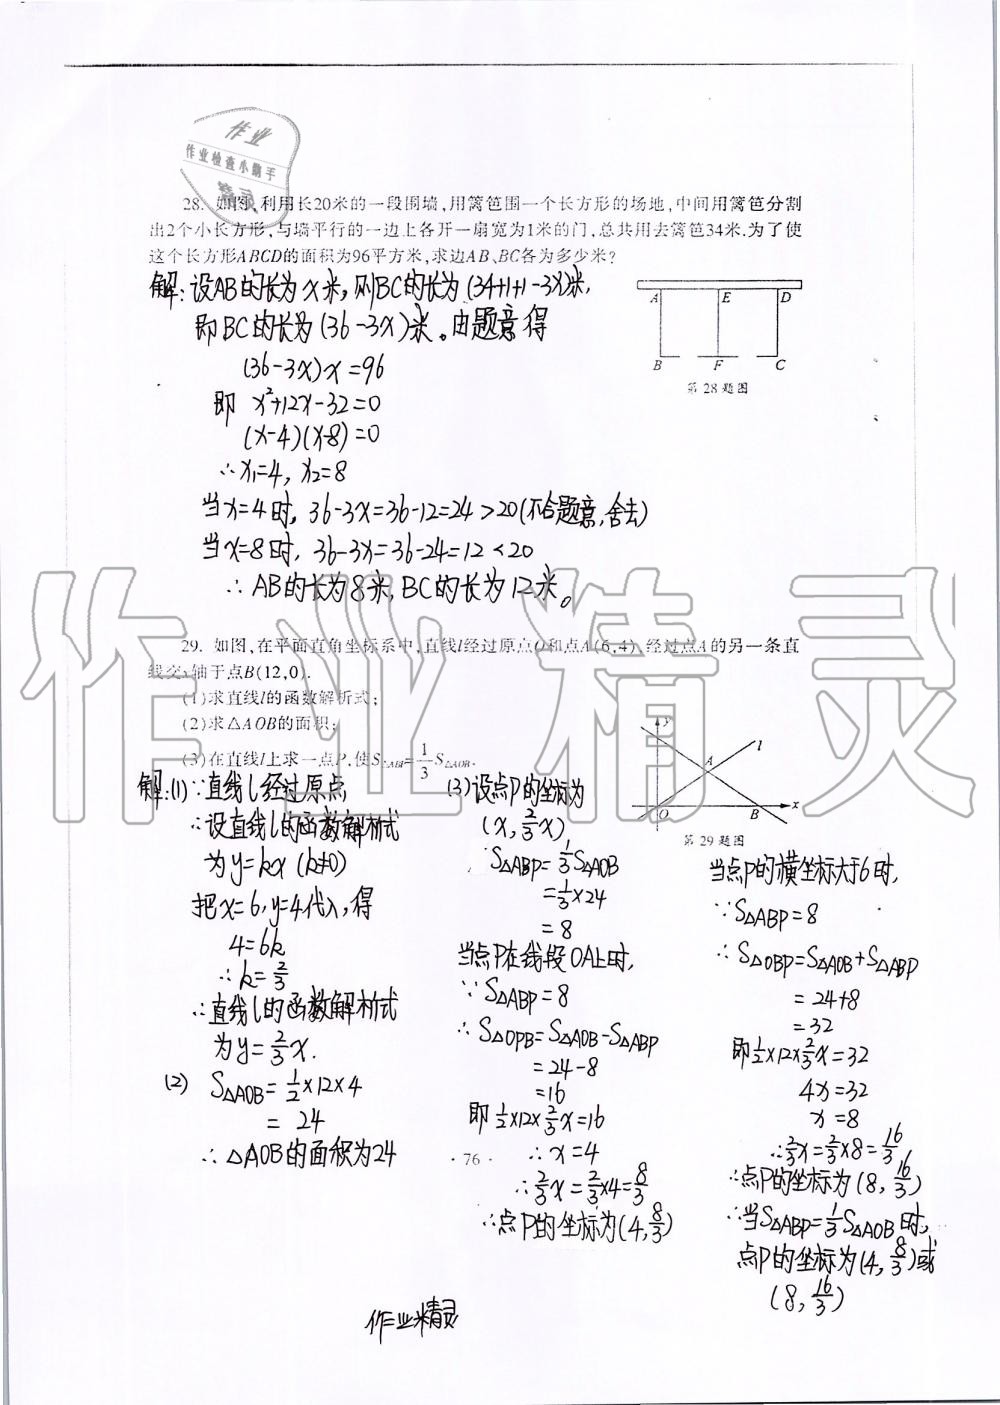 作业
作业检查小助手
精灵
28. 如图,利用长20米的一段围墙,用篱笆围一个长方形的场地,中间用篱笆分割
出2个小长方形,与墙平行的一边上各开一扇宽为1米的门,总共用去篱笆34米.为了使
这个长方形ABCD的面积为96平方米,求边AB、BC各为多少米?
解:设AB的长为x米,则BC的长为(34+1+1-3x)米,
即BC的长为(36-3x)米。由题意得
(36-3x)x=96
即 x²+12x-32=0
(x-4)(x-8)=0
∴x₁=4, x₂=8
当x=4时, 36-3x=36-12=24>20(不合题意,舍去)
当x=8时, 36-3x=36-24=12<20
∴AB的长为8米,BC的长为12米。
A E D
B F C
第28题图
作业精灵
29. 如图,在平面直角坐标系中,直线l经过原点O和点A(6,4),经过点A的另一条直
线交x轴于点B(12,0).
(1)求直线l的函数解析式;
(2)求△AOB的面积;
(3)在直线l上求一点P,使S△ABP=1/3 S△AOB.
y
l
A
O B x
第29题图
解:(1)∵直线l经过原点
∴设直线l的函数解析式
为y=kx (k≠0)
把x=6,y=4代入,得
4=6k
∴k=2/3
∴直线l的函数解析式
为y=2/3x.
(2) S△AOB=1/2×12×4
= 24
∴△AOB的面积为24
(3)设点P的坐标为
(x, 2/3x)
S△ABP=1/3S△AOB
=1/3×24
=8
当点P在线段OA上时,
∵S△ABP=8
∴S△OPB=S△AOB-S△ABP
=24-8
=16
即1/2×12×2/3x=16
∴x=4
∴2/3x=2/3×4=8/3
∴点P的坐标为(4,8/3)
当点P的横坐标大于6时,
∵S△ABP=8
∴S△OBP=S△AOB+S△ABP
=24+8
=32
即1/2×12×2/3x=32
4x=32
x=8
∴2/3x=2/3×8=16/3
∴点P的坐标为(8,16/3)
∴当S△ABP=1/3S△AOB时,
点P的坐标为(4,8/3)或
(8,16/3)
· 76 ·
作业精灵